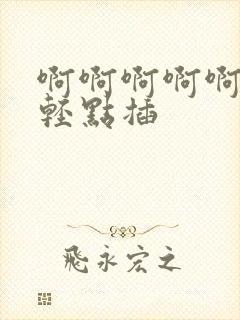 啊啊啊啊啊
輕點插
飛永宏之